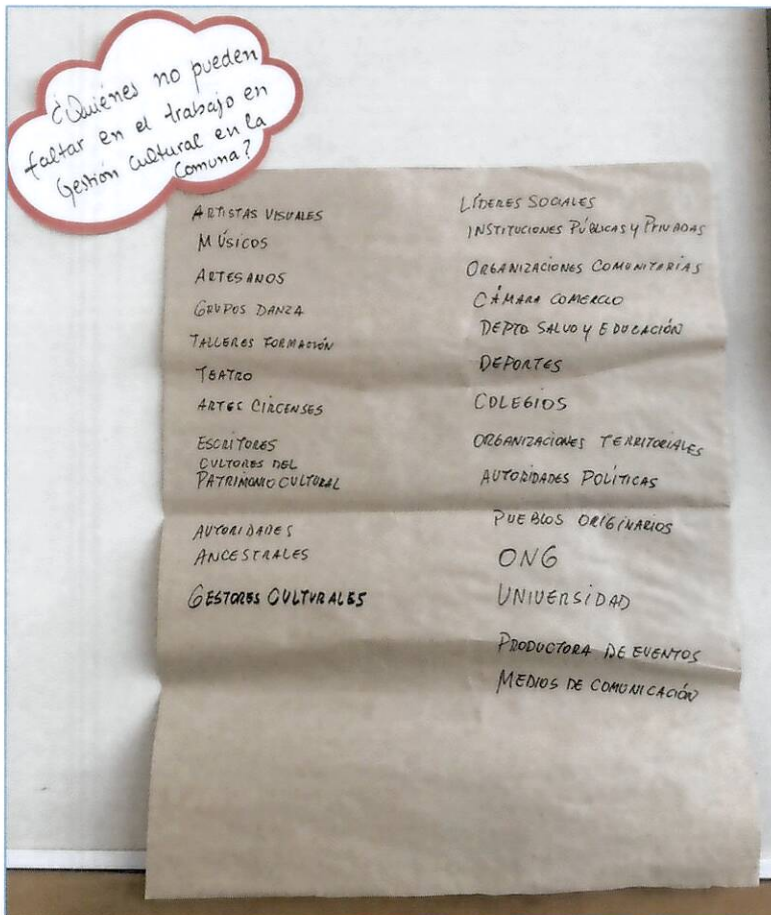 ¿Quiénes no pueden
faltar en el trabajo en
Gestión Cultural en la
Comuna?
ARTISTAS VISUALES
MÚSICOS
ARTESANOS
GRUPOS DANZA
TALLERES FORMACIÓN
TEATRO
ARTES CIRCENSES
ESCRITORES
CULTORES DEL
PATRIMONIO CULTURAL
AUTORIDADES
ANCESTRALES
GESTORES CULTURALES
LÍDERES SOCIALES
INSTITUCIONES PÚBLICAS Y PRIVADAS
ORGANIZACIONES COMUNITARIAS
CÁMARA COMERCIO
DEPTO SALUD Y EDUCACIÓN
DEPORTES
COLEGIOS
ORGANIZACIONES TERRITORIALES
AUTORIDADES POLÍTICAS
PUEBLOS ORIGINARIOS
ONG
UNIVERSIDAD
PRODUCTORA DE EVENTOS
MEDIOS DE COMUNICACIÓN